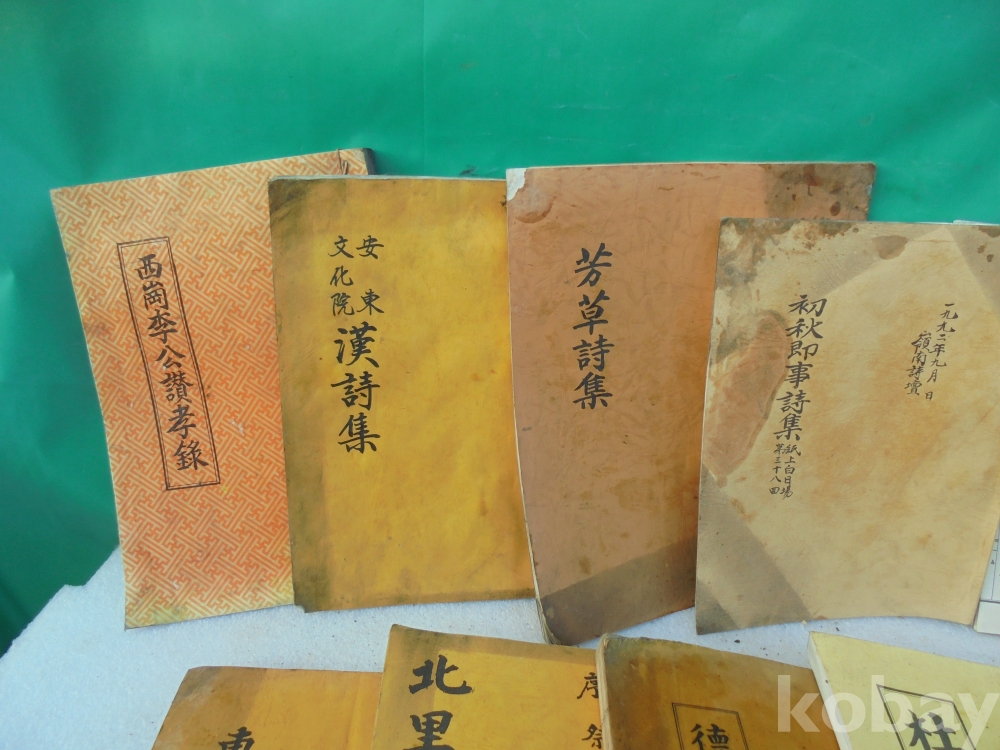 西崗李公讚孝錄
安東
文化院
漢詩集
芳草詩集
一九九二年九月 日
嶺南詩壇
初秋即事詩集
紙上白日場
第三十八回
東
北里
序
祭
德
kobay